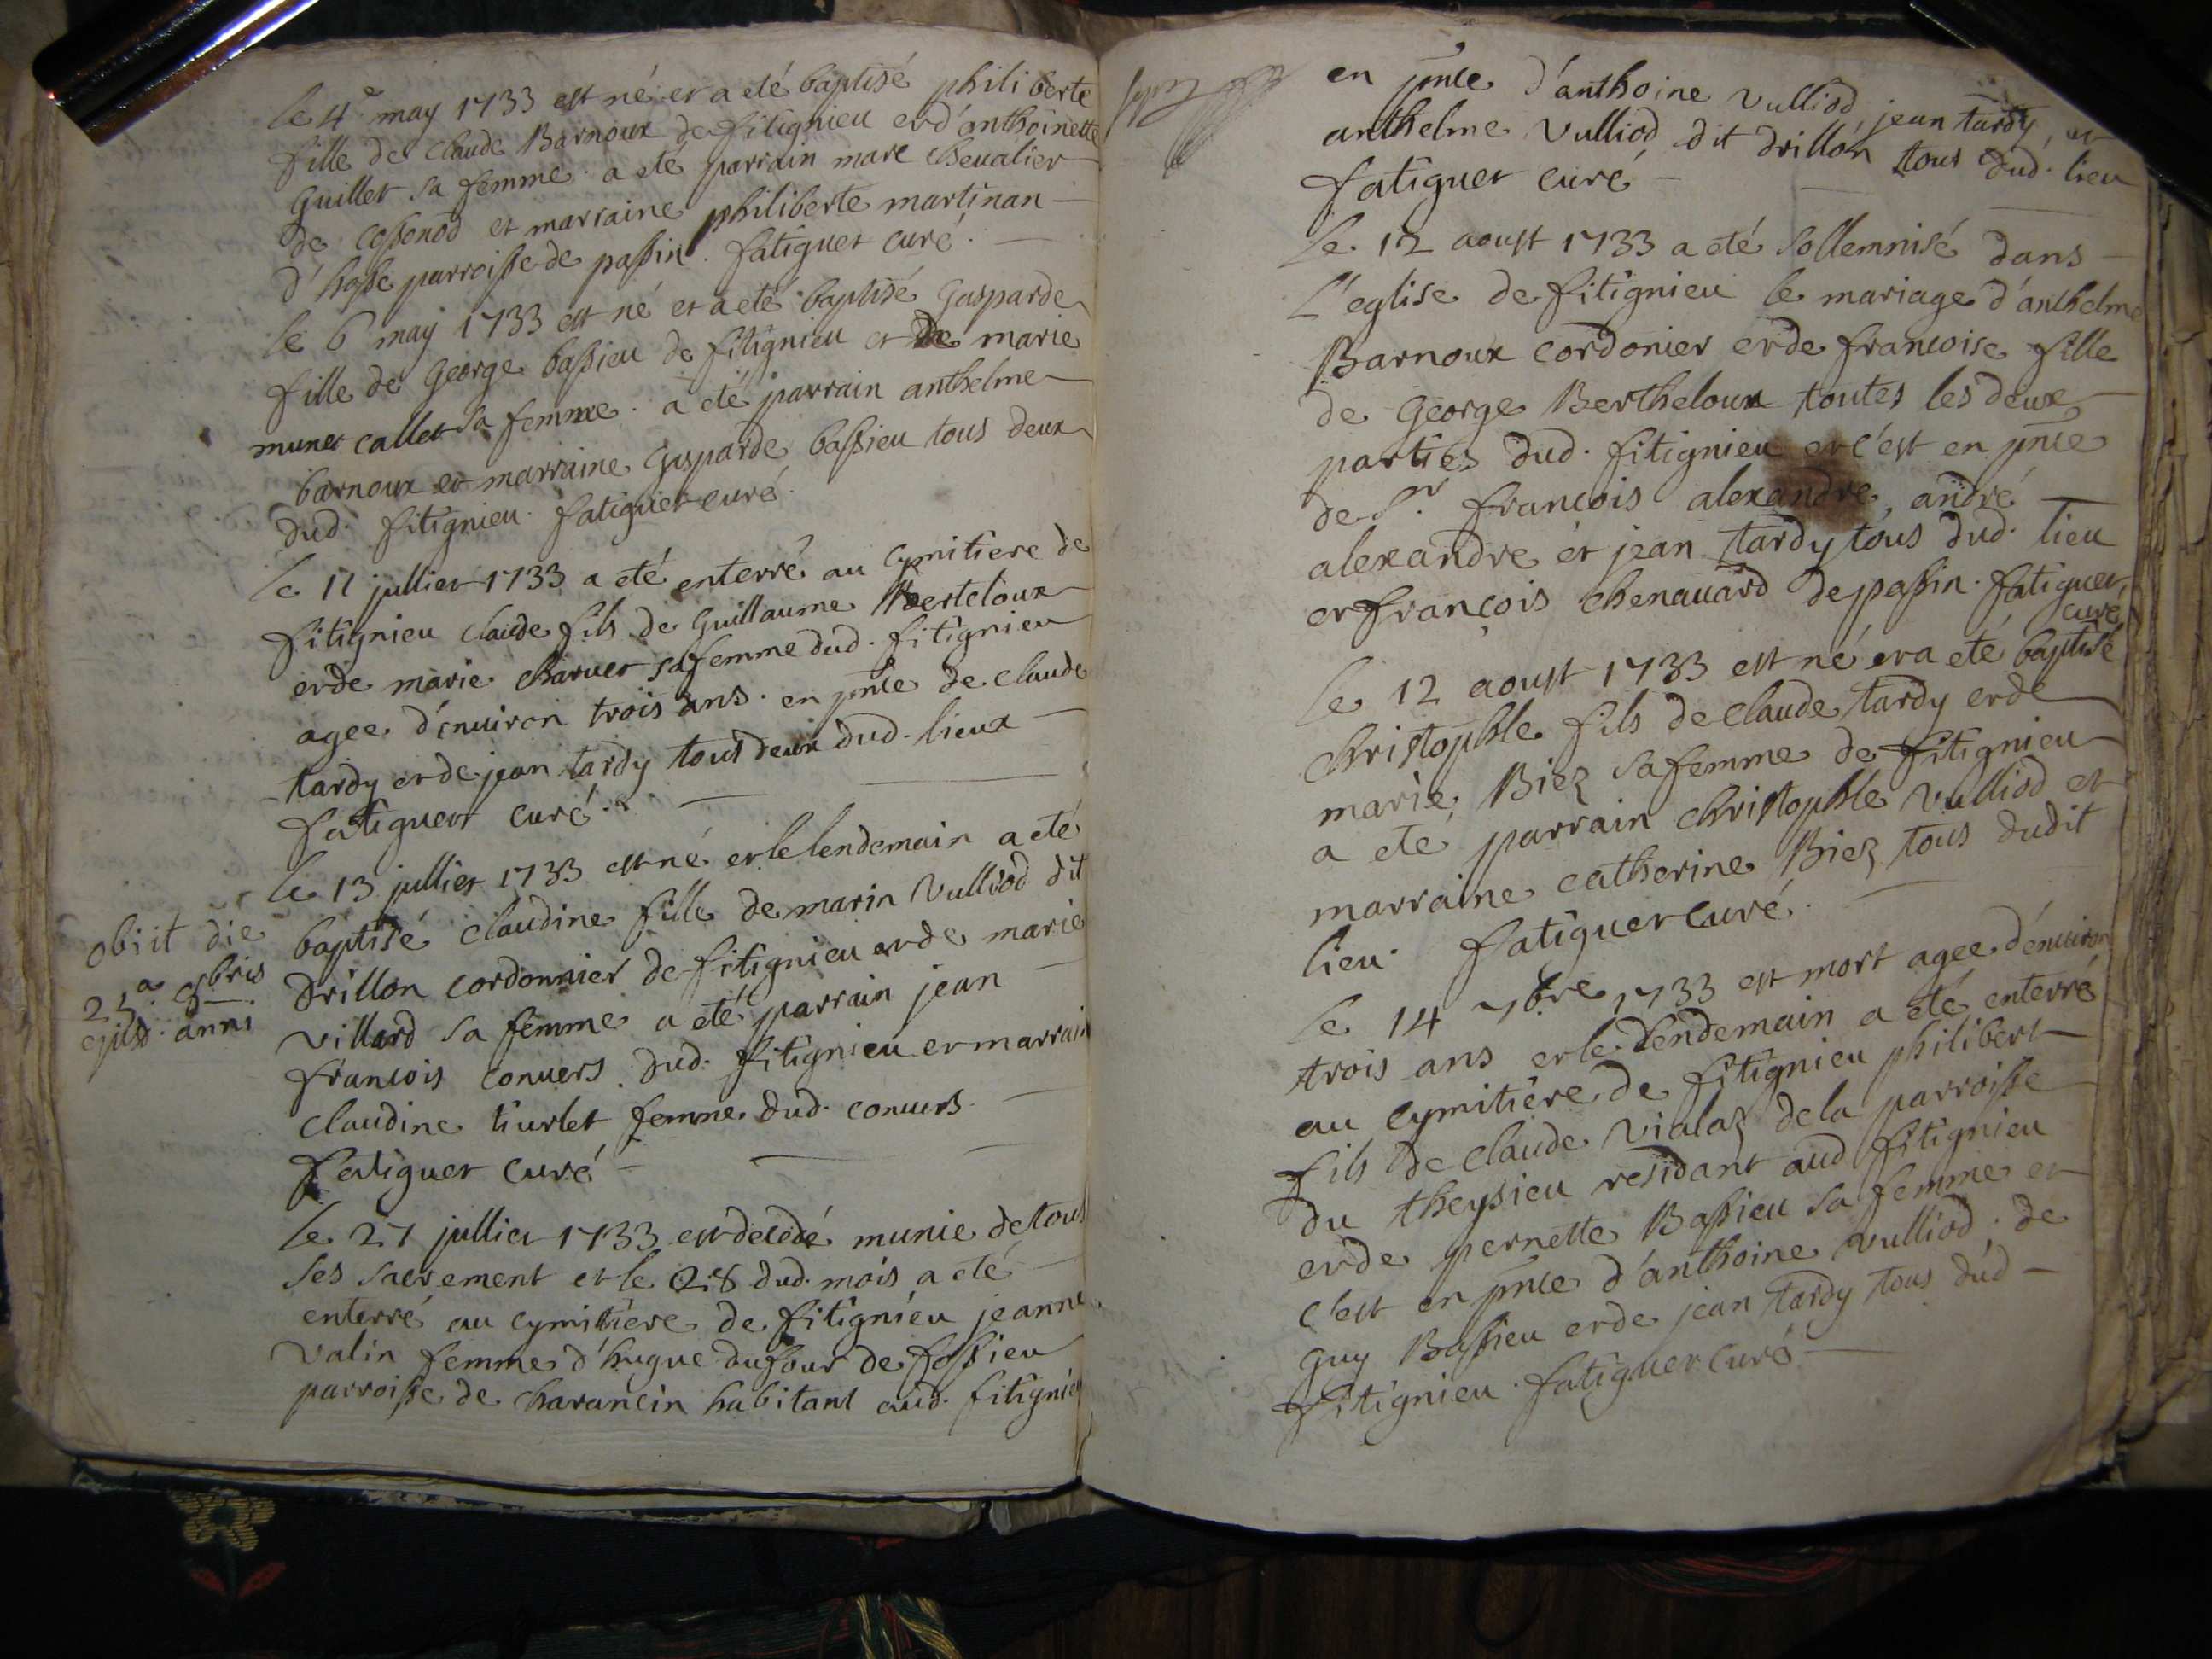 le 4e may 1733 est né et a eté baptisé philiberte
fille de claude Barnoux de fitignieu et d'anthoinette
Guillet sa femme. a eté parrain marc chevalier
de cossonod et marraine philiberte martinan
d'hosse parroisse de passin. fatiguet curé.
le 6 may 1733 est né et a eté baptisé gasparde
fille de George bassieu de fitignieu et de marie
munet callet sa femme. a eté parrain anthelme
barnoux et marraine gasparde bassieu tous deux
dud. fitignieu. fatiguet curé.
le 11 jullier 1733 a eté enterré au cymitiere de
fitignieu claude fils de Guillaume berteloux
et de marie charvet sa femme dud. fitignieu
agee d'environ trois ans. en pnce de claude
tardy et de jean tardy tous deux dud. lieux
fatiguet curé.
le 13 jullier 1733 est né et le lendemain a eté
baptisé claudine fille de marin Vulliod dit
drillon cordonnier de fitignieu et de marie
villard sa femme a eté parrain jean
francois convers dud. fitignieu et marrain
claudine tiurlet femme dud. convers
fatiguet curé
obiit die
25a 9bris
ejusd. anni
le 27 jullier 1733 est decedé munie de tous
ses sacrement et le 28 dud. mois a eté
enterré au cymitiere de fitignieu jeanne
valin femme d'hugue dufour de fossieu
parroisse de charancin habitant aud. fitignieu
en pnce d'anthoine vulliod, jean tardy, et
anthelme vulliod dit drillon tous dud. lieu
fatiguet curé
le 12 aoust 1733 a eté sollemnisé dans
l'eglise de fitignieu le mariage d'anthelme
Barnoux cordonier et de francoise fille
de George Bertheloux toutes les deux
parties dud. fitignieu et c'est en pnce
de Sr. francois alexandre, andré
alexandre et jean tardy tous dud. lieu
et françois chenavard de passin. fatiguet
curé
le 12 aoust 1733 est né et a eté baptisé
christophle fils de claude tardy et de
marie Biez sa femme de fitignieu
a eté parrain christophle vulliod et
marraine catherine Biez tous dudit
lieu. fatiguet curé.
le 14 7bre 1733 est mort agee d'environ
trois ans et le lendemain a eté enterré
au cymitiere de fitignieu philibert
fils de claude vialaz de la parroisse
du theysieu residant aud fitignieu
et de pernette Bassieu sa femme et
c'est en pnce d'anthoine vulliod, de
guy Bassieu et de jean tardy tous dud
fitignieu. fatiguet curé